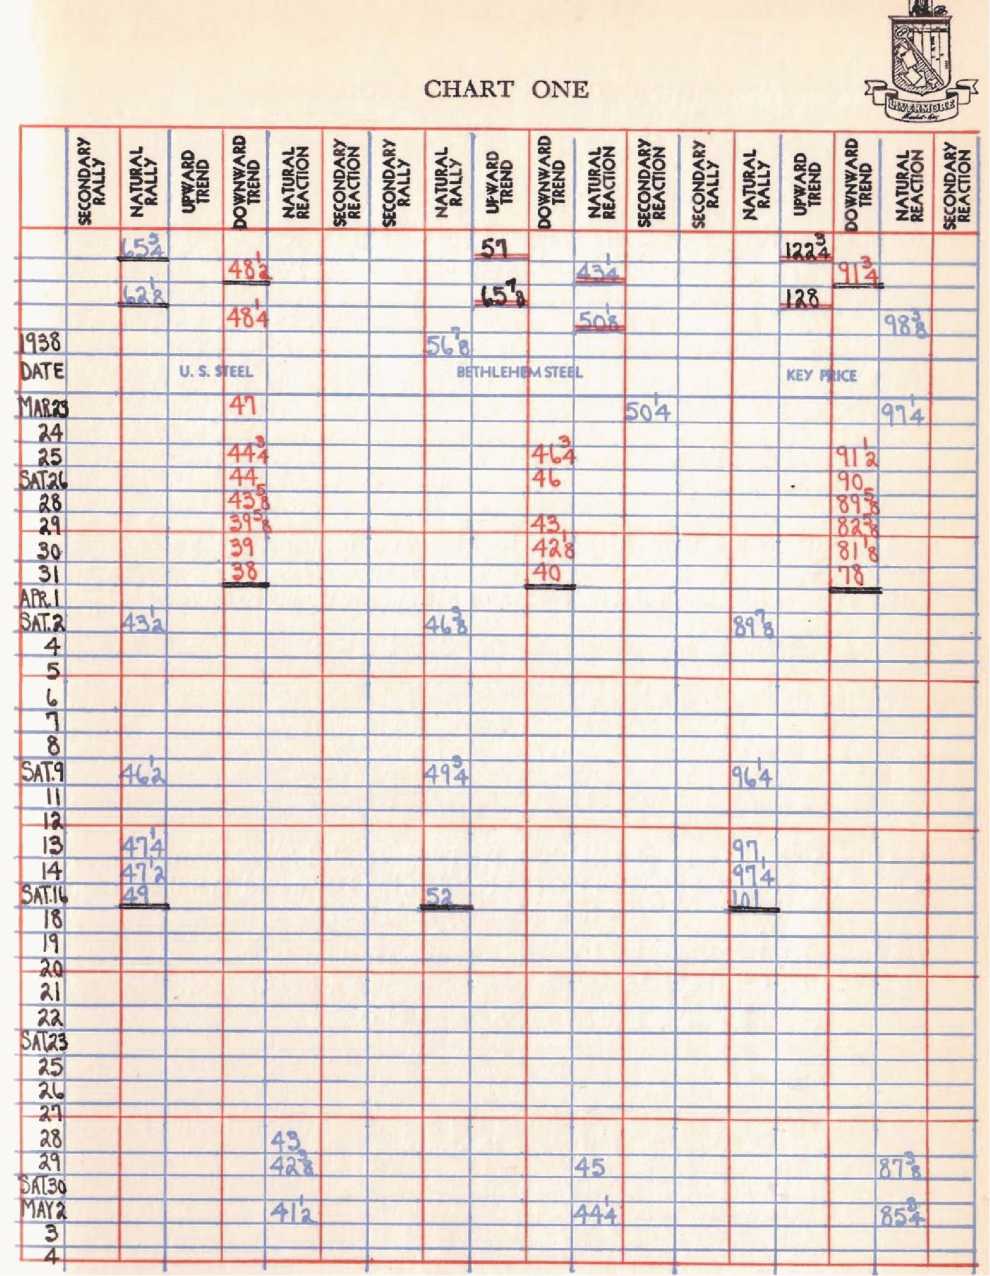 LIVERMORE
Market Key
CHART ONE
SECONDARY RALLY NATURAL RALLY UPWARD TREND DOWNWARD TREND NATURAL REACTION SECONDARY REACTION SECONDARY RALLY NATURAL RALLY UPWARD TREND DOWNWARD TREND NATURAL REACTION SECONDARY REACTION SECONDARY RALLY NATURAL RALLY UPWARD TREND DOWNWARD TREND NATURAL REACTION SECONDARY REACTION
65 3/4 57 122 3/4
48 1/2 43 1/4 91 3/4
62 1/8 65 7/8 128
48 1/4 50 1/8 98 3/8
1938 56 7/8
DATE U. S. STEEL BETHLEHEM STEEL KEY PRICE
MAR 23 47 50 1/4 97 1/4
24
25 44 3/4 46 3/4 91 1/2
SAT. 26 44 46 90
28 43 5/8 89 5/8
29 39 5/8 43 82 5/8
30 39 42 1/8 81 1/8
31 38 40 78
APR. 1
SAT. 2 43 1/2 46 3/8 89 7/8
4
5
6
7
8
SAT. 9 46 1/2 49 3/4 96 1/4
11
12
13 47 1/4 97
14 47 1/2 97 1/4
SAT. 16 49 52 101
18
19
20
21
22
SAT 23
25
26
27
28 43
29 42 3/8 45 87 3/8
SAT. 30
MAY 2 41 1/2 44 1/4 85 3/4
3
4